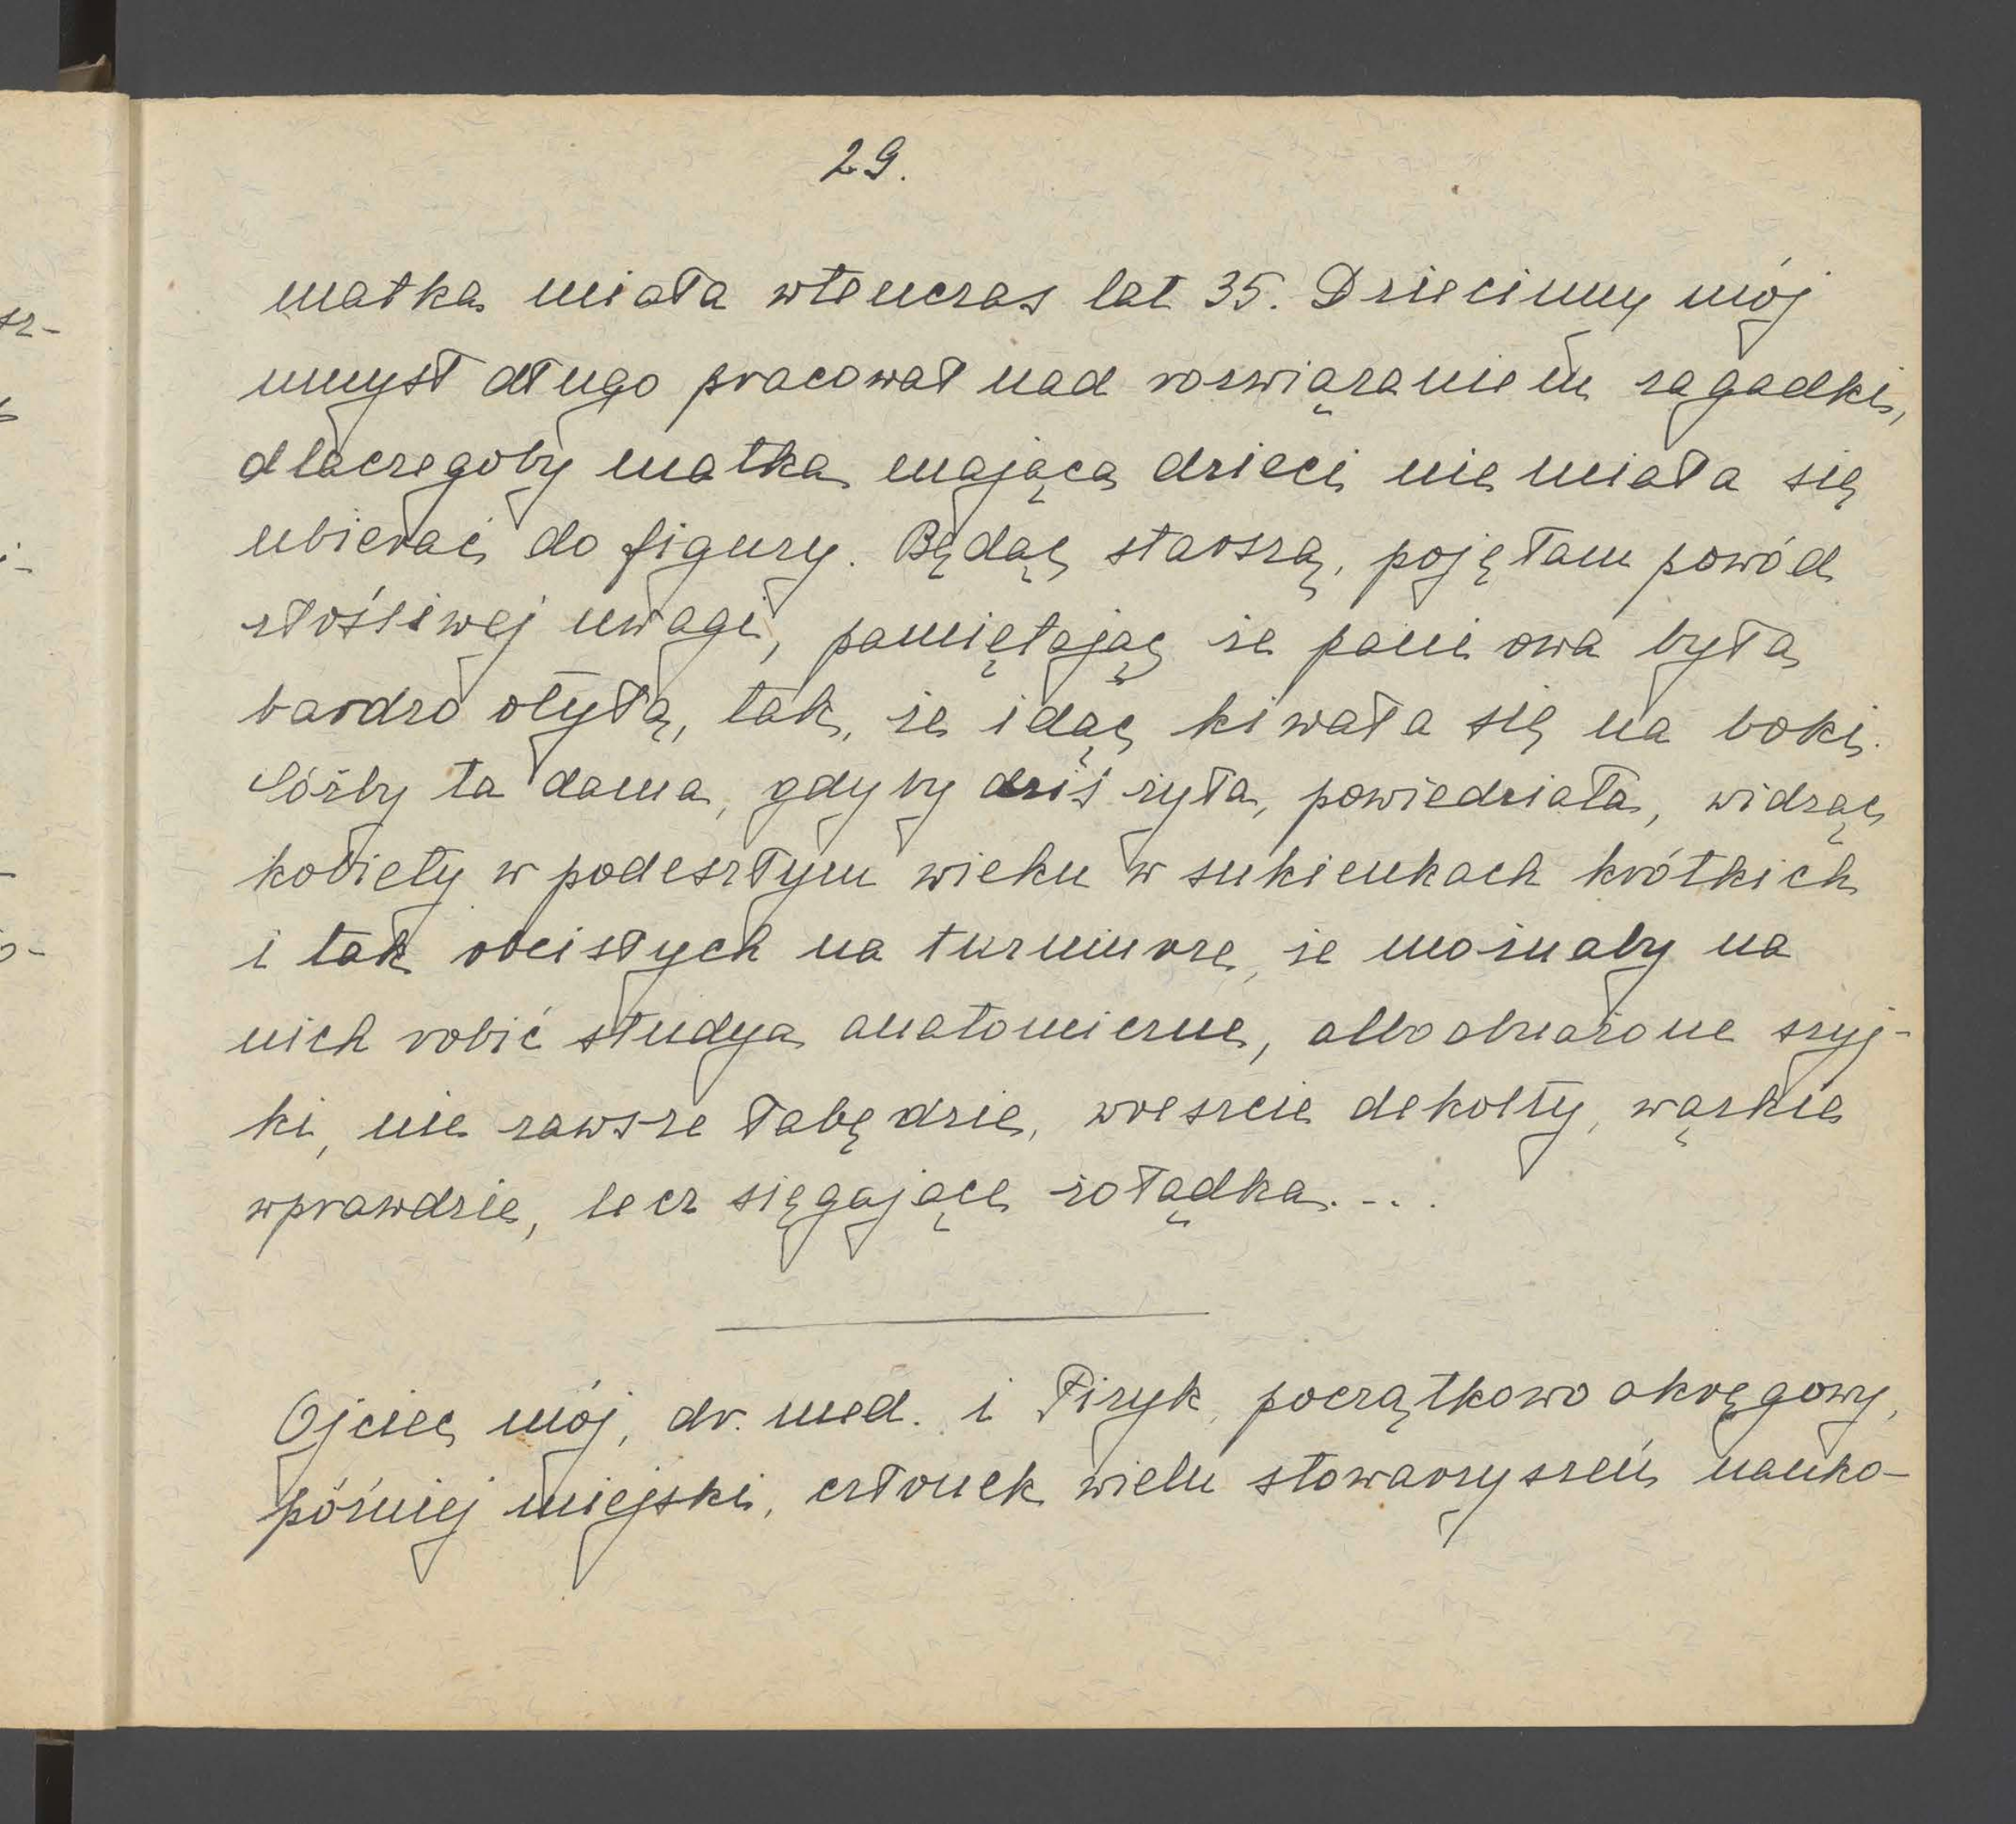 29.
matka miała wtenczas lat 35. Dziecinny mój
umysł długo pracował nad rozwiązaniem zagadki,
dlaczegoby matka mająca dzieci nie miała się
ubierać do figury. Będąc starszą, pojęłam powód
złośliwej uwagi, pamiętając że pani owa była
bardzo otyłą, tak, że idąc kiwała się na boki.
Cóżby ta dama, gdyby dziś żyła, powiedziała, widząc
kobiety w podeszłym wieku w sukienkach krótkich
i tak obcisłych na turniurze, że możnaby na
nich robić studya anatomiczne, albo obnażone szyj-
ki, nie zawsze łabędzie, wreszcie dekolty, wąskie
wprawdzie, lecz sięgające żołądka....
Ojciec mój, dr. med. i Fizyk, początkowo okręgowy,
później miejski, członek wielu stowarzyszeń nauko-
sz-